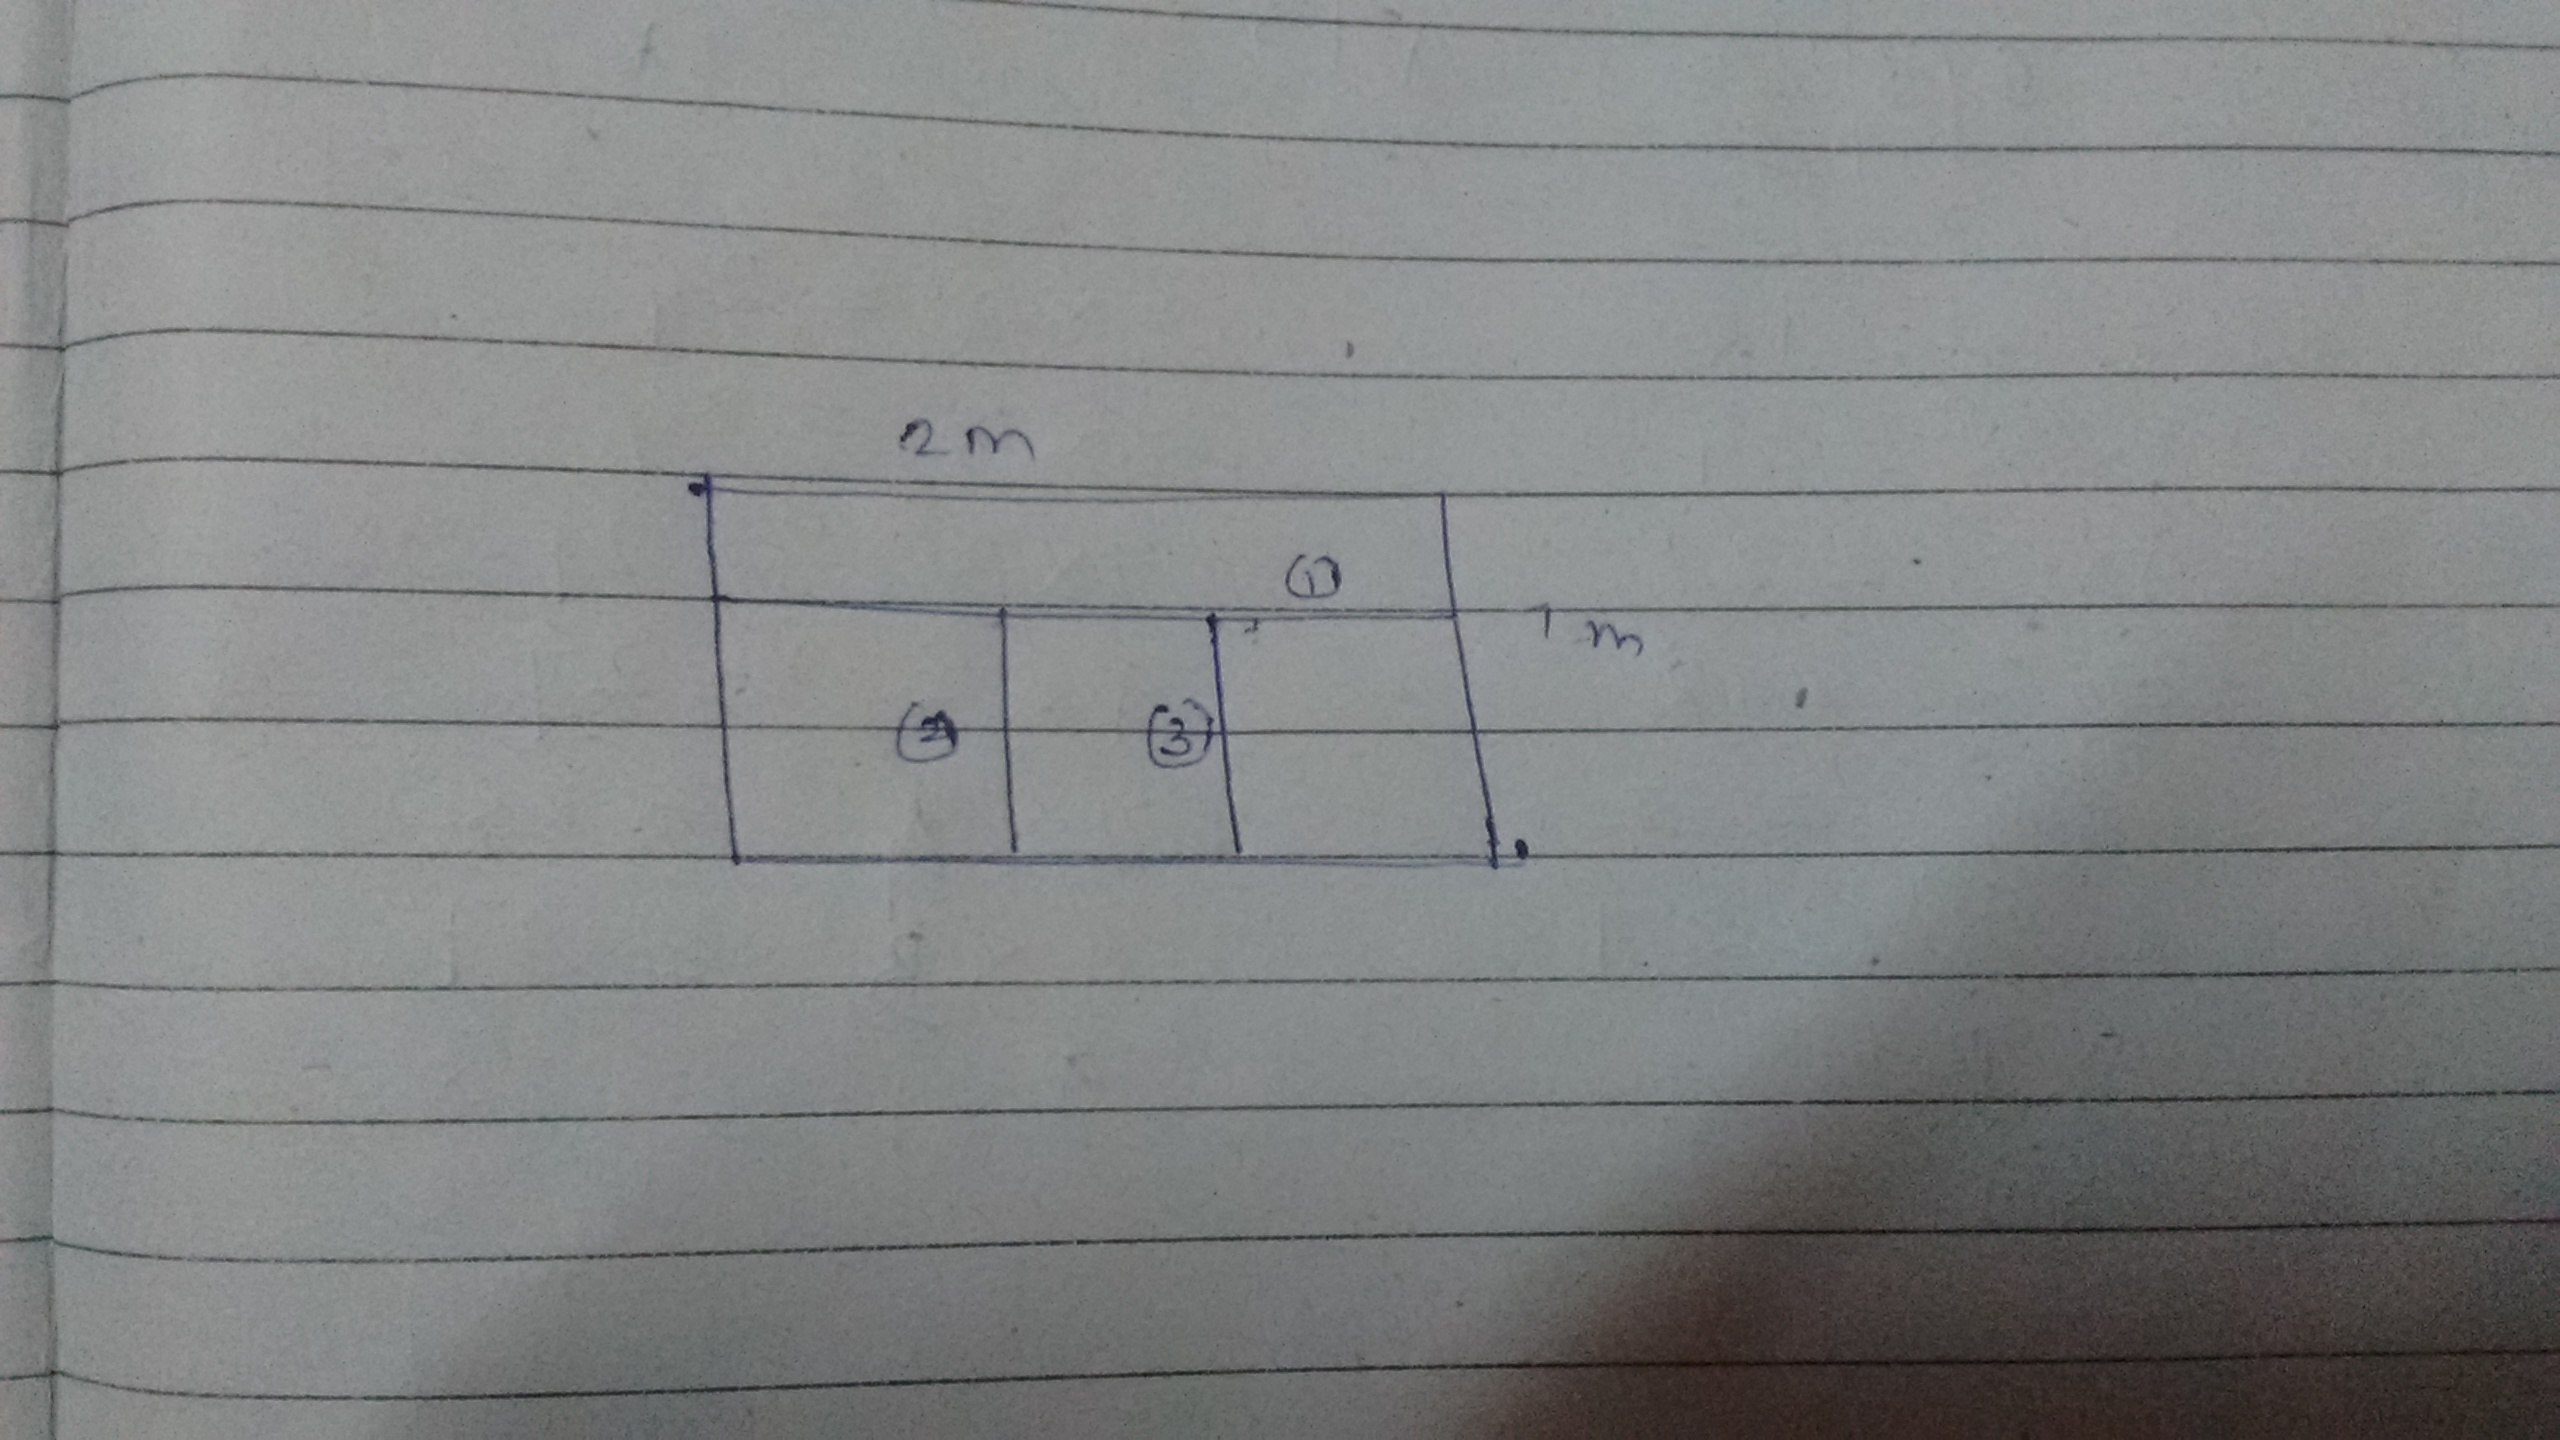 2 m
①
1 m
②
③